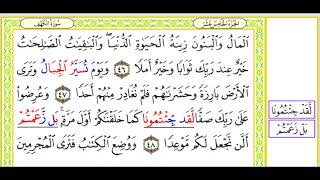 الجزء الخامس عشر
سورة الكهف
الْمَالُ وَالْبَنُونَ زِينَةُ الْحَيَوٰةِ الدُّنْيَا ۖ وَالْبَٰقِيَٰتُ الصَّٰلِحَٰتُ
خَيْرٌ عِندَ رَبِّكَ ثَوَابًا وَخَيْرٌ أَمَلًا ٤٦ وَيَوْمَ نُسَيِّرُ الْجِبَالَ وَتَرَى
الْأَرْضَ بَارِزَةً وَحَشَرْنَٰهُمْ فَلَمْ نُغَادِرْ مِنْهُمْ أَحَدًا ٤٧ وَعُرِضُوا
عَلَىٰ رَبِّكَ صَفًّا لَّقَدْ جِئْتُمُونَا كَمَا خَلَقْنَٰكُمْ أَوَّلَ مَرَّةٍ ۚ بَلْ زَعَمْتُمْ
أَلَّن نَّجْعَلَ لَكُم مَّوْعِدًا ٤٨ وَوُضِعَ الْكِتَٰبُ فَتَرَى الْمُجْرِمِينَ
لَقَد جِئْتُمُونَا
بَل زَعَمْتُمْ